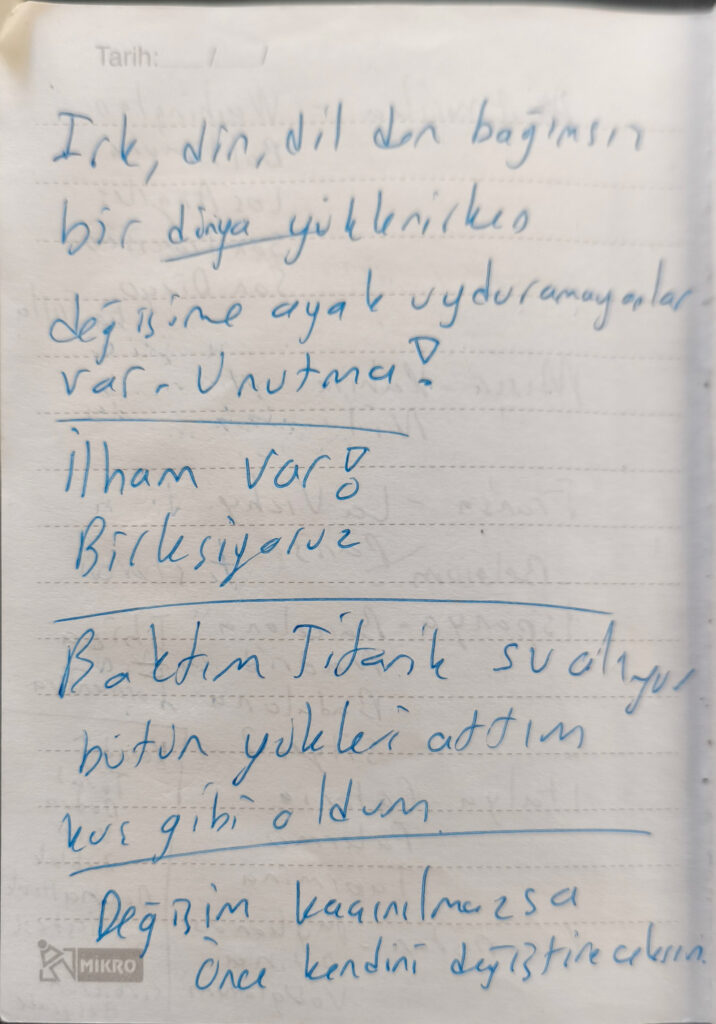 Tarih: / /
Irk, din, dil den bağımsız
bir dünya yüklenirken
değişime ayak uyduramayanlar
var. Unutma!
İlham var!
Birleşiyoruz
Baktım Titanik su alıyor
bütün yükleri attım
kuş gibi oldum
Değişim kaçınılmazsa
Önce kendini değiştireceksin.
MIKRO